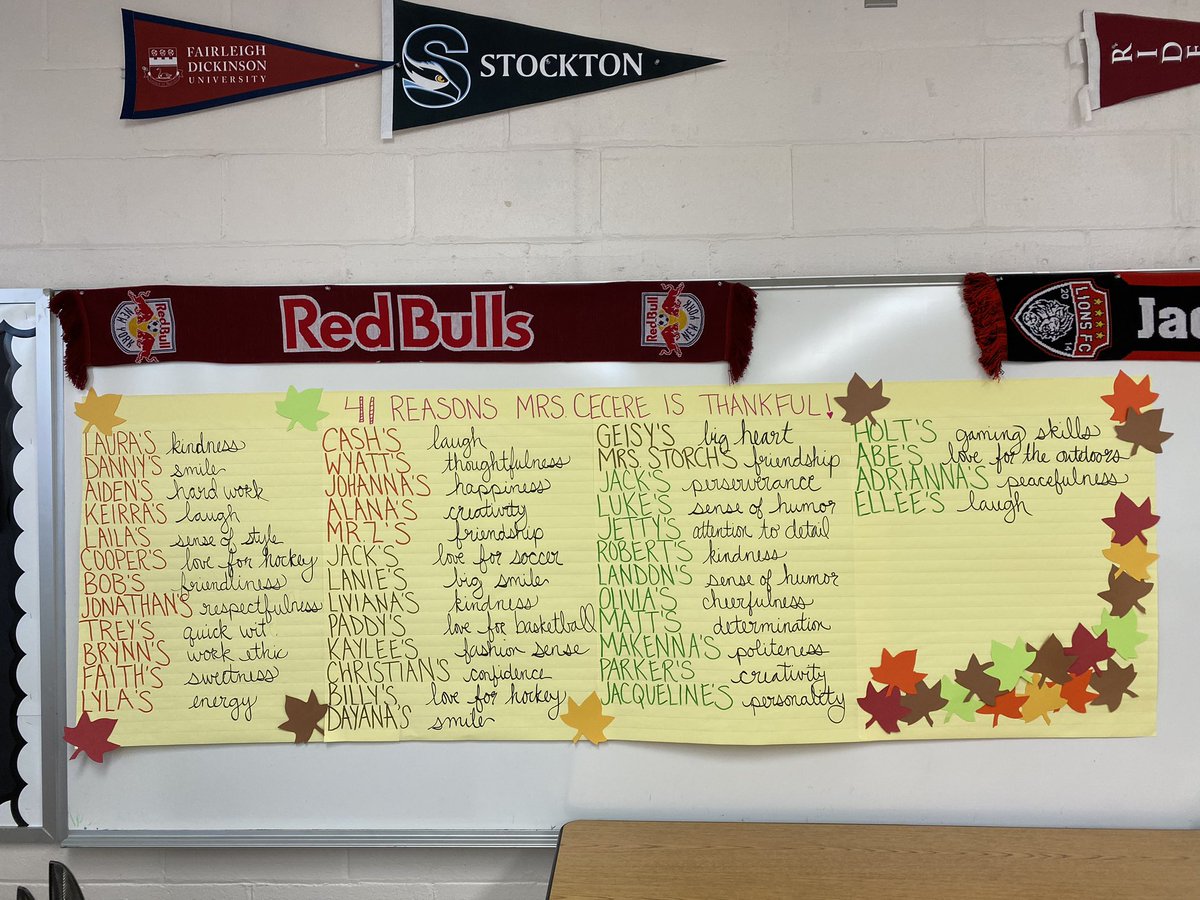 FAIRLEIGH
DICKINSON
UNIVERSITY
S STOCKTON
RIDE
Red Bulls
Red Bull
NEW YORK
Red Bull
NEW YORK
LIONS FC
20 14
Jac
41 REASONS MRS. CECERE IS THANKFUL!
LAURA'S kindness
DANNY'S smile
AIDEN'S hard work
KEIRRA'S laugh
LAILA'S sense of style
COOPER'S love for hockey
BOB'S friendliness
JONATHAN'S respectfulness
TREY'S quick wit.
BRYNN'S work ethic
FAITH'S sweetness
LYLA'S energy
CASH'S laugh
WYATT'S thoughtfulness
JOHANNA'S happiness
ALANA'S creativity
MR. Z'S friendship
JACK'S love for soccer
LANIE'S big smile
LIVIANA'S kindness
PADDY'S love for basketball
KAYLEE'S fashion sense
CHRISTIAN'S confidence
BILLY'S love for hockey
DAYANA'S smile
GEISY'S big heart
MRS. STORCH'S friendship
JACK'S perseverance
LUKE'S sense of humor
JETTY'S attention to detail
ROBERT'S kindness
LANDON'S sense of humor
OLIVIA'S cheerfulness
MATT'S determination
MAKENNA'S politeness
PARKER'S creativity
JACQUELINE'S personality
HOLT'S gaming skills
ABE'S love for the outdoors
ADRIANNA'S peacefulness
ELLEE'S laugh